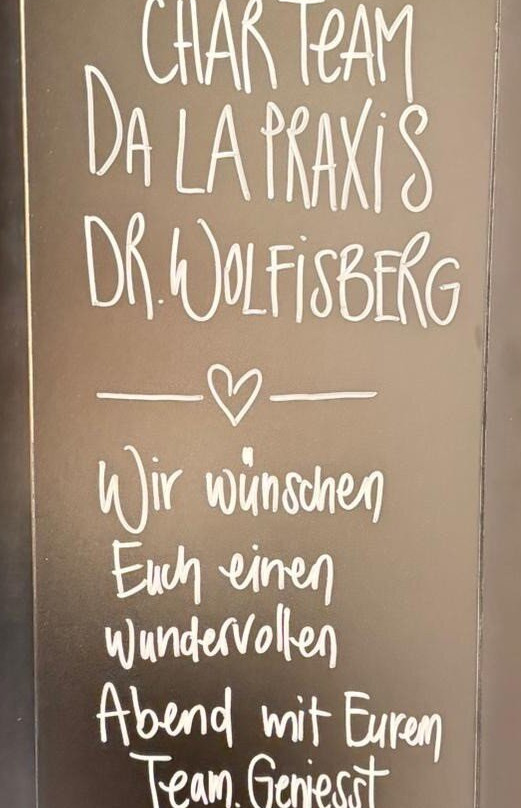 CHAR TEAM
DA LA PRAXIS
DR. WOLFISBERG
Wir wünschen
Euch einen
wundervollen
Abend mit Eurem
Team. Geniesst